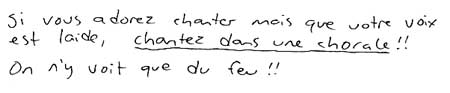 Si vous adorez chanter mais que votre voix
est laide, chantez dans une chorale !!
On n'y voit que du feu !!